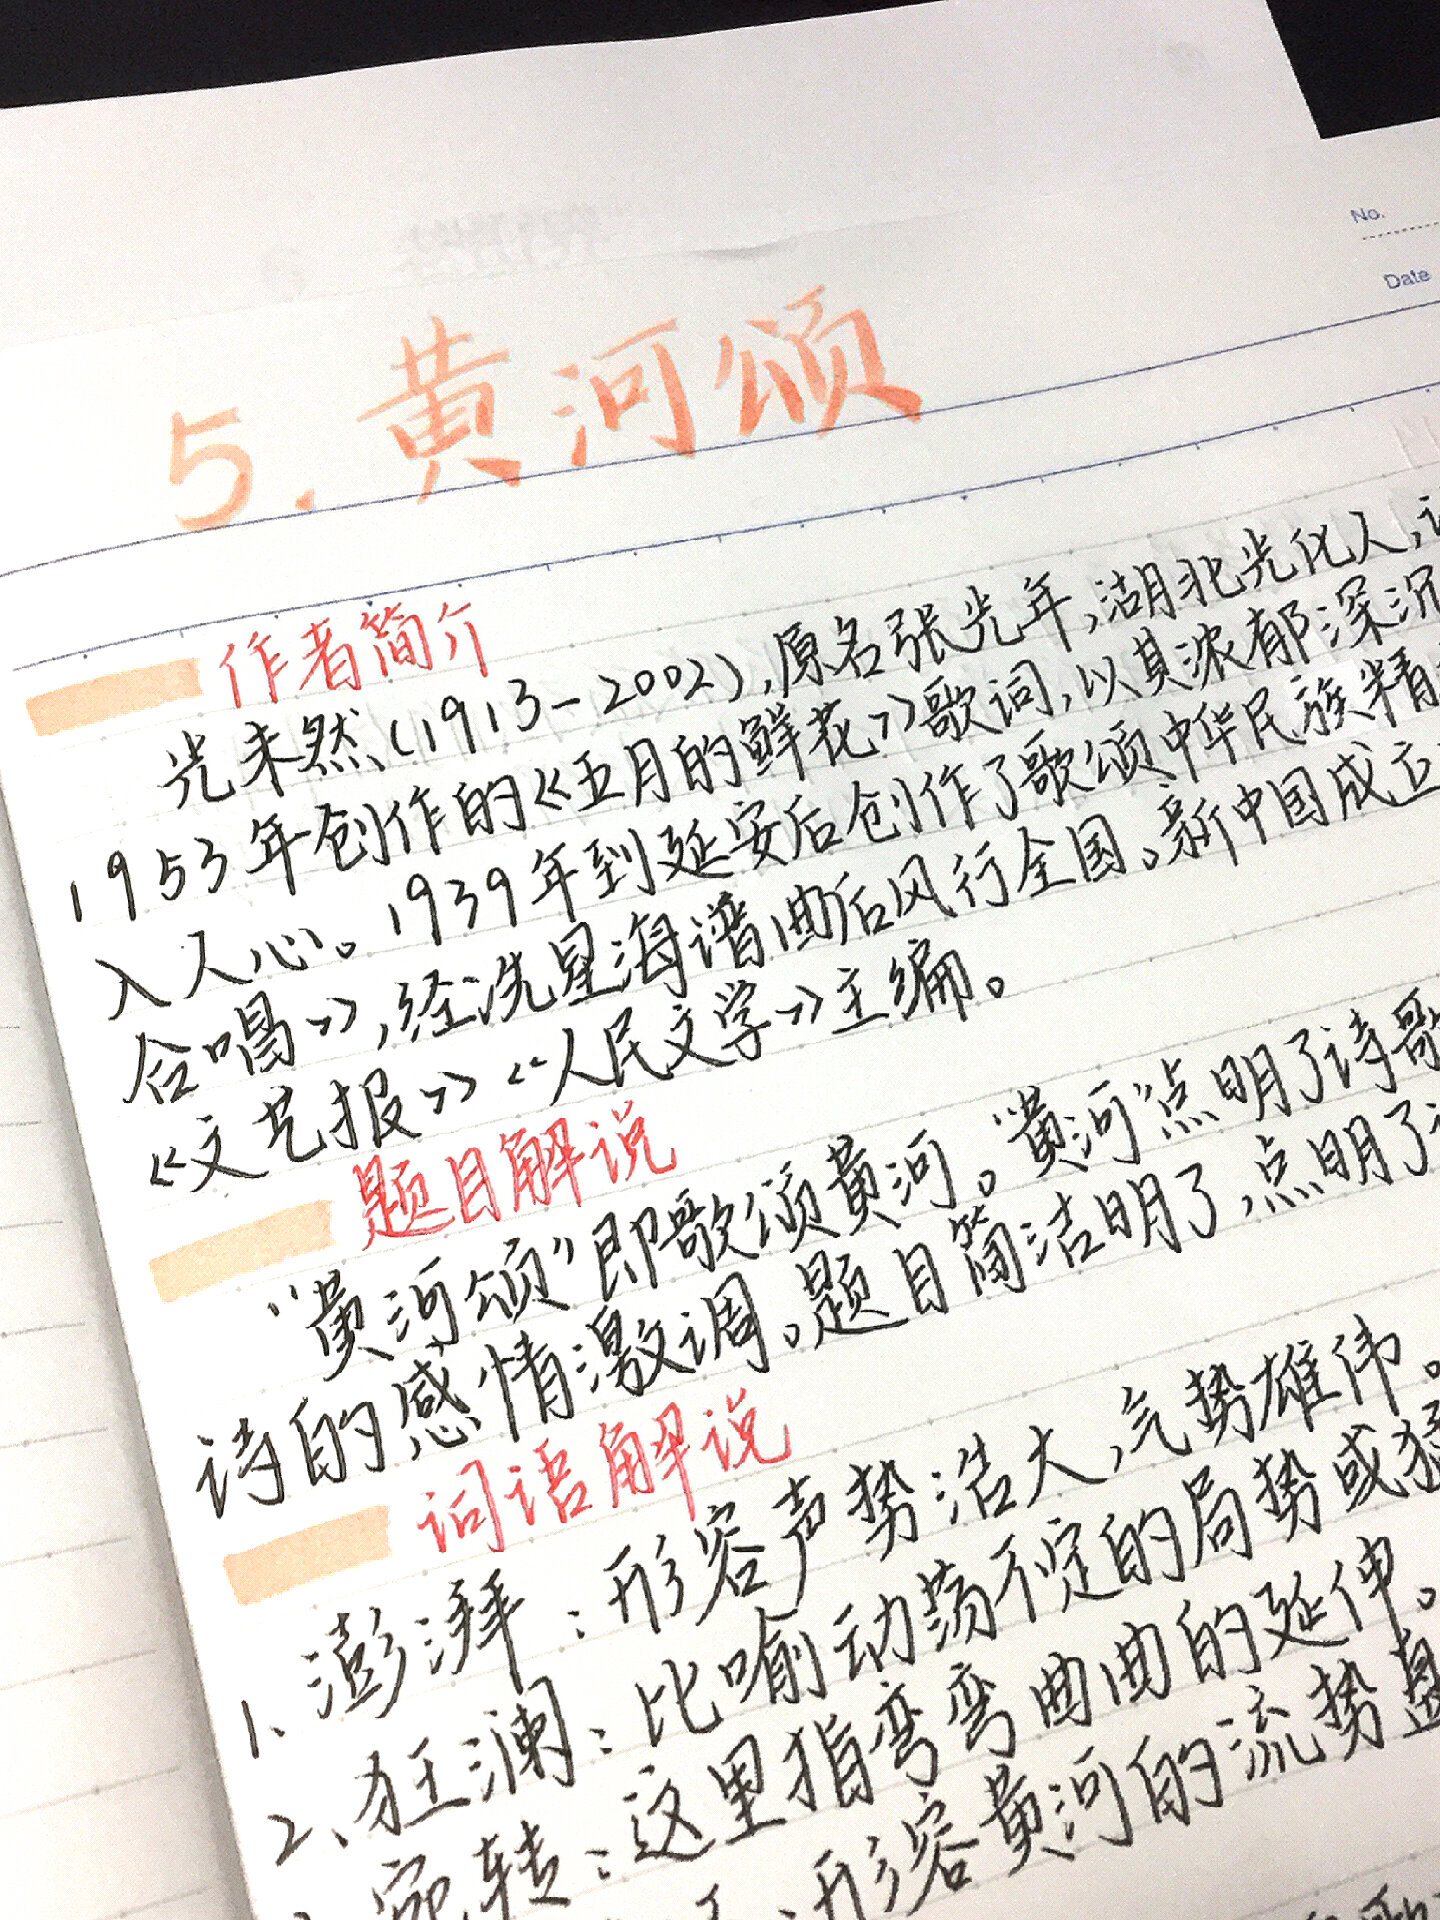 No.
Date
5. 黄河颂
作者简介
光未然(1913-2002),原名张光年,湖北光化人,
1953年创作的《五月的鲜花》歌词,以其浓郁深沉
入人心。1939年到延安后创作了歌颂中华民族精
合唱》,经冼星海谱曲后风行全国。新中国成立
《文艺报》《人民文学》主编。
题目解说
“黄河颂”即歌颂黄河。“黄河”点明了诗歌
诗的感情激调。题目简洁明了,点明了
词语解说
1、澎湃:形容声势浩大,气势雄伟。
2、狂澜:比喻动荡不定的局势或猛
宛转:这里指弯弯曲曲的延伸。
:形容黄河的流势